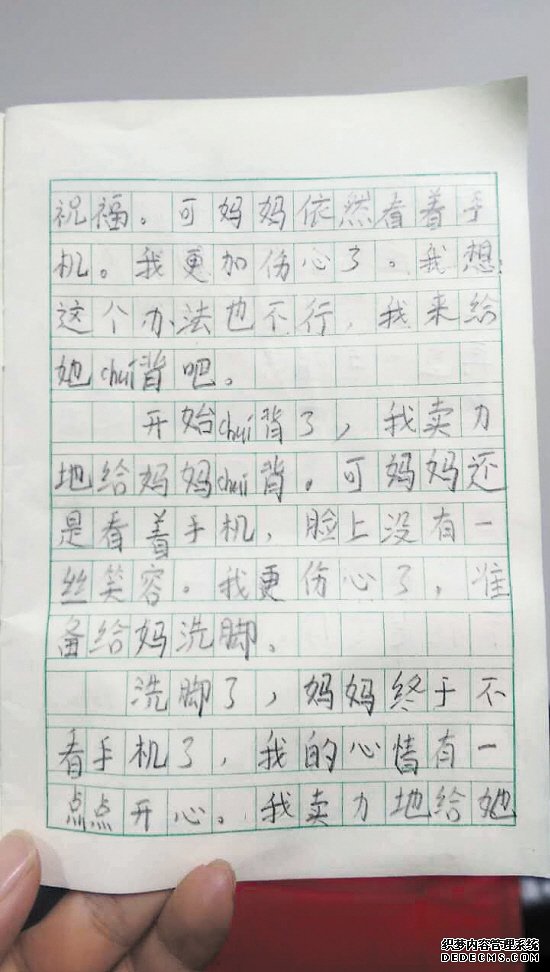 祝福。可妈妈依然看着手
机。我更加伤心了。我想:
这个办法也不行,我来给
她chuí背吧。
开始chuí背了,我卖力
地给妈妈chuí背。可妈妈还
是看着手机,脸上没有一
丝笑容。我更伤心了,准
备给妈洗脚。
洗脚了,妈妈终于不
看手机了,我的心情有一
点点开心。我卖力地给她
织梦内容管理系统
DEDECMS.COM